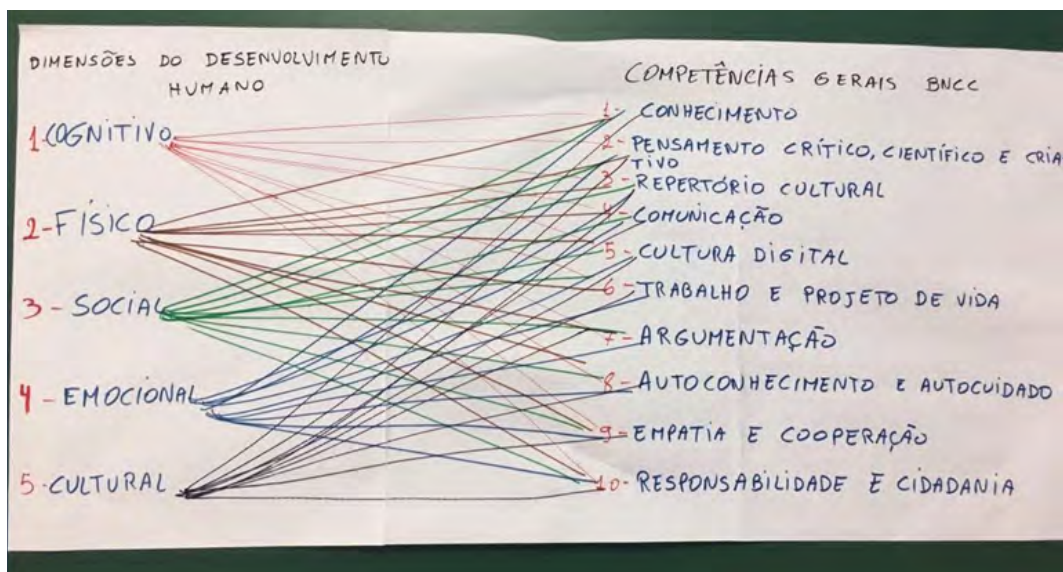 DIMENSÕES DO DESENVOLVIMENTO
HUMANO
1-COGNITIVO
2-FÍSICO
3-SOCIAL
4-EMOCIONAL
5-CULTURAL
COMPETÊNCIAS GERAIS BNCC
1-CONHECIMENTO
2-PENSAMENTO CRÍTICO, CIENTÍFICO E CRIA
TIVO
3-REPERTÓRIO CULTURAL
4-COMUNICAÇÃO
5-CULTURA DIGITAL
6-TRABALHO E PROJETO DE VIDA
7-ARGUMENTAÇÃO
8-AUTOCONHECIMENTO E AUTOCUIDADO
9-EMPATIA E COOPERAÇÃO
10-RESPONSABILIDADE E CIDADANIA